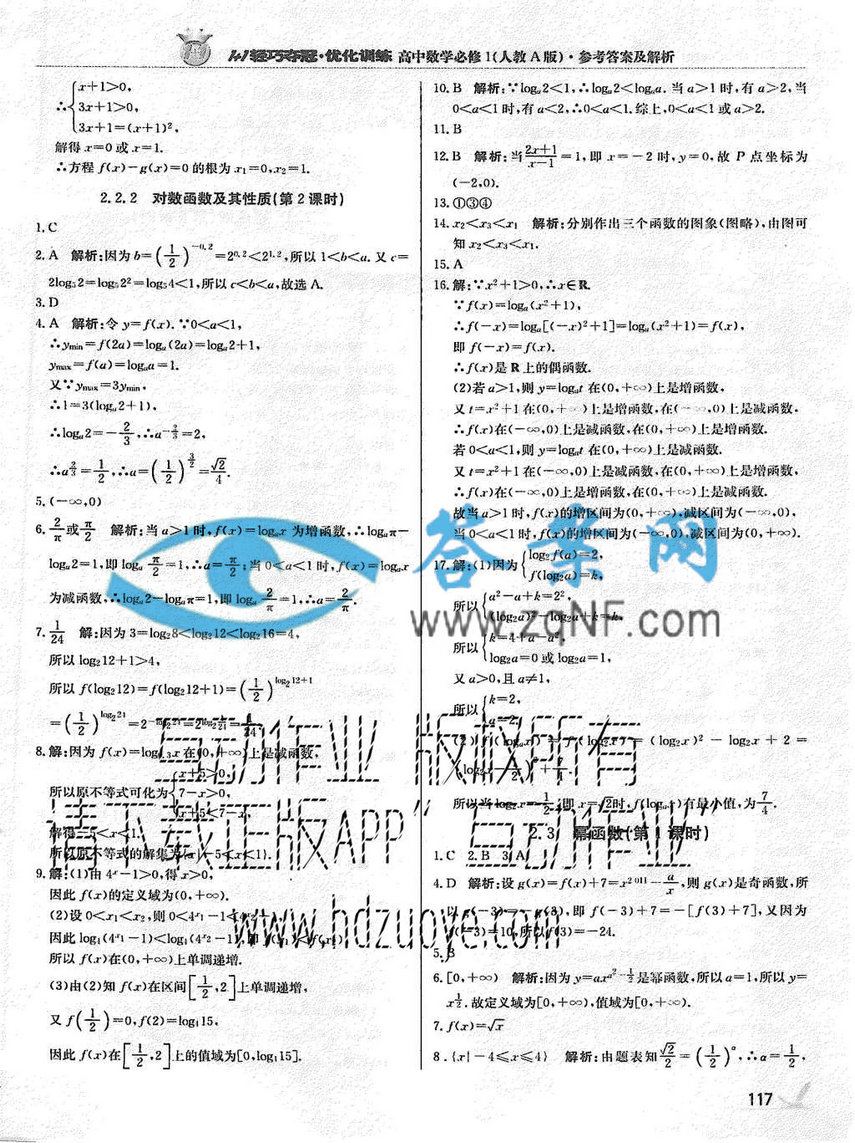 1+1轻巧夺冠·优化训练 高中数学必修1(人教A版)·参考答案及解析
x+1>0,
∴ 3x+1>0,
3x+1=(x+1)²,
解得 x=0 或 x=1.
∴方程 f(x)-g(x)=0 的根为 x₁=0,x₂=1.
2.2.2 对数函数及其性质(第2课时)
1.C
2.A 解析:因为 b=(1/2)^(-0.2)=2^0.2<2^1.2,所以 1<b<a. 又 c=
2log₅2=log₅2²=log₅4<1,所以 c<b<a,故选 A.
3.D
4.A 解析:令 y=f(x).∵0<a<1,
∴y_min=f(2a)=logₐ(2a)=logₐ2+1,
y_max=f(a)=logₐa=1.
又∵y_max=3y_min,
∴1=3(logₐ2+1),
∴logₐ2=-2/3,∴a^(-2/3)=2,
∴a^(2/3)=1/2,∴a=(1/2)^(3/2)=√2/4.
5.(-∞,0)
6. 2/π 或 π/2 解析:当 a>1 时,f(x)=logₐx 为增函数,∴logₐπ-
logₐ2=1,即 logₐ π/2=1,∴a=π/2;当 0<a<1 时,f(x)=logₐx
为减函数,∴logₐ2-logₐπ=1,即 logₐ 2/π=1,∴a=2/π.
7. 1/24 解:因为 3=log₂8<log₂12<log₂16=4,
所以 log₂12+1>4,
所以 f(log₂12)=f(log₂12+1)=(1/2)^(log₂12+1)
=(1/2)^(log₂24)=2^(-log₂24)=2^(log₂ 1/24)=1/24.
8.解:因为 f(x)=log₀.₃x 在(0,+∞)上是减函数,
x+5>0,
所以原不等式可化为 7-x>0,
x+5<7-x,
解得-5<x<1.
所以原不等式的解集为{x|-5<x<1}.
9.解:(1)由 4ˣ-1>0,得 x>0,
因此 f(x)的定义域为(0,+∞).
(2)设 0<x₁<x₂,则 0<4^x₁-1<4^x₂-1,
因此 log₄(4^x₁-1)<log₄(4^x₂-1),即 f(x₁)<f(x₂).
所以 f(x)在(0,+∞)上单调递增.
(3)由(2)知 f(x)在区间[1/2,2]上单调递增,
又 f(1/2)=0,f(2)=log₄15,
因此 f(x)在[1/2,2]上的值域为[0,log₄15].
10.B 解析:∵logₐ2<1,∴logₐ2<logₐa. 当 a>1 时,有 a>2,当
0<a<1 时,有 a<2,∴0<a<1.综上,0<a<1 或 a>2.
11.B
12.B 解析:当 (2x+1)/(x-1)=1,即 x=-2 时,y=0,故 P 点坐标为
(-2,0).
13.①③④
14.x₂<x₃<x₁ 解析:分别作出三个函数的图象(图略),由图可
知 x₂<x₃<x₁.
15.A
16.解:∵x²+1>0,∴x∈R.
∵f(x)=logₐ(x²+1),
∴f(-x)=logₐ[(-x)²+1]=logₐ(x²+1)=f(x),
即 f(-x)=f(x).
∴f(x)是 R 上的偶函数.
(2)若 a>1,则 y=logₐt 在(0,+∞)上是增函数,
又 t=x²+1 在(0,+∞)上是增函数,在(-∞,0)上是减函数,
∴f(x)在(-∞,0)上是减函数,在(0,+∞)上是增函数.
若 0<a<1,则 y=logₐt 在(0,+∞)上是减函数.
又 t=x²+1 在(-∞,0)上是减函数,在(0,+∞)上是增函数,
∴f(x)在(-∞,0)上是增函数,在(0,+∞)上是减函数.
故当 a>1 时,f(x)的增区间为(0,+∞),减区间为(-∞,0),
当 0<a<1 时,f(x)的增区间为(-∞,0),减区间为(0,+∞).
17.解:(1)因为 log₂f(a)=2,
f(log₂a)=k,
所以 a²-a+k=2²,
(log₂a)²-log₂a+k=k,
所以 k=4+a-a²,
log₂a=0 或 log₂a=1,
又 a>0,且 a≠1,
所以 k=2,
a=2.
(2) f(logₐx) = f(log₂x) = (log₂x)² - log₂x + 2 =
(log₂x-1/2)²+7/4.
所以当 log₂x=1/2,即 x=√2时,f(logₐx)有最小值,为 7/4.
2.3 幂函数(第1课时)
1.C 2.B 3.A
4.D 解析:设 g(x)=f(x)+7=x^2011-a/x,则 g(x)是奇函数,所
以 g(-3)=-g(3),即 f(-3)+7=-[f(3)+7],又因为
f(-3)=10,所以 f(3)=-24.
5.B
6.[0,+∞) 解析:因为 y=ax^(a²-1/2)是幂函数,所以 a=1,所以 y=
x^(1/2).故定义域为[0,+∞),值域为[0,+∞).
7.f(x)=√x
8.{x|-4≤x≤4} 解析:由题表知 √2/2=(1/2)^α,∴α=1/2,
117
答案网
www.zqNF.com
互动作业 版权所有
请下载正版APP"互动作业"
www.hdzuoye.com